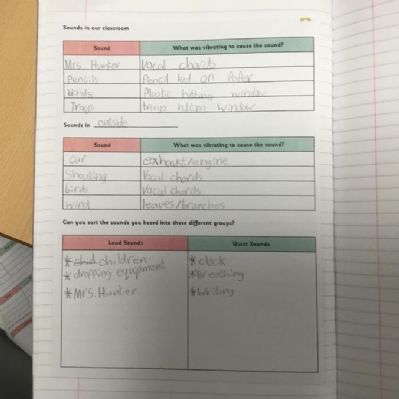 Sounds in our classroom
Sound What was vibrating to cause the sound?
Mrs. Hunter Vocal chords
Pencils Pencil led on Paper
Blinds Plastic hitting window
hitting window
Sounds in outside
Sound What was vibrating to cause the sound?
Car exhaust/engine
Shouting Vocal chords
birds Vocal chords
wind leaves/branches
Can you sort the sounds you heard into these different groups?
Loud Sounds Quiet Sounds
* children * clock
* dropping equipment * Breathing
* Mrs. Hunter * Writing